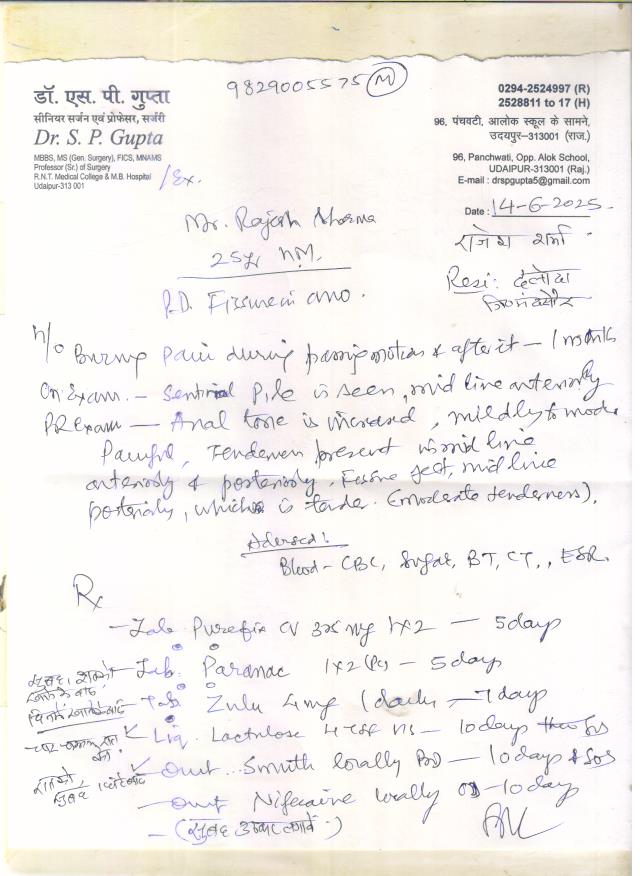 9829005575 (M)
डॉ. एस. पी. गुप्ता
सीनियर सर्जन एवं प्रोफेसर, सर्जरी
Dr. S. P. Gupta
MBBS, MS (Gen. Surgery), FICS, MNAMS
Professor (Sr.) of Surgery
R.N.T. Medical College & M.B. Hospital
Udaipur-313 001
/Ex.
0294-2524997 (R)
2528811 to 17 (H)
96, पंचवटी, आलोक स्कूल के सामने,
उदयपुर-313001 (राज.)
96, Panchwati, Opp. Alok School,
UDAIPUR-313001 (Raj.)
E-mail : drspgupta5@gmail.com
Date : 14-6-2025
Mr. Rajesh Sharma
राजेश शर्मा
25yr
Resi:
P.D. Fissure in ano.
H/o Burning Pain during passing motion & after it - 1 month
On Exam. - Sentinal Pile is seen, mid line anteriorly
PR Exam - Anal tone is increased, mildly to mode
Painful, Tenderness present in mid line
anteriorly & posteriorly. Fissure felt, mid line
posteriorly, which is tender. (moderate tenderness).
Advised:
Blood - CBC, Sugar, BT, CT, ESR.
Rx
- Tab. CV 325 mg 1x2 - 5 days
- Tab. Paranac 1x2 - 5 days
- Tab Zulu 4 mg 1 daily - 7 days
- Liq. Lactulose 4 TSF HS - 10 days
- Oint. Smuth locally BD - 10 days & SOS
- Oint Nifecaine locally - 10 days